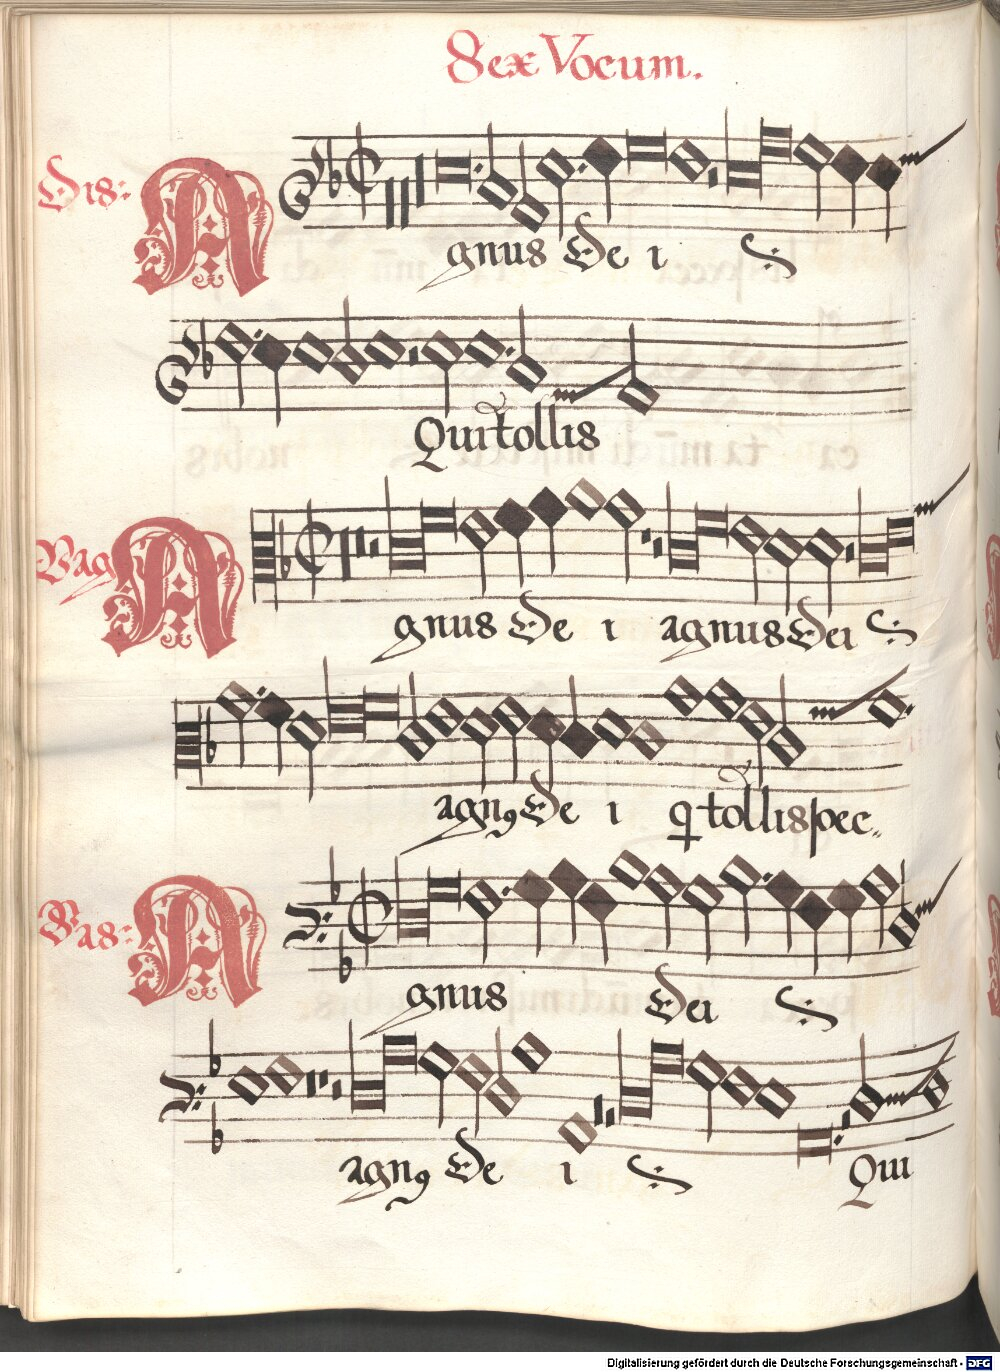 Sex Vocum.
Dis:
A gnus De i
Qui tollis
Vag
A gnus De i agnus Dei
agn9 De i q tollis pec
Bas:
A gnus Dei
agn9 De i Qui
Digitalisierung gefördert durch die Deutsche Forschungsgemeinschaft - DFG